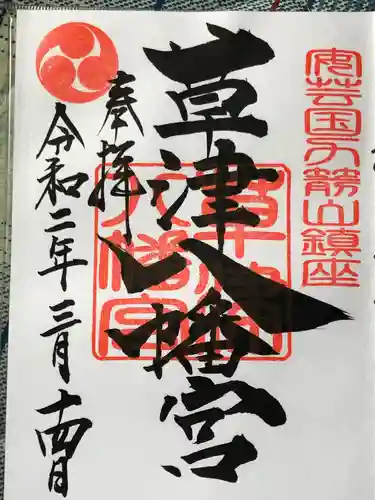 安芸国力箭山鎮座
草津八幡宮
奉拝
令和二年三月十四日
草津八幡宮